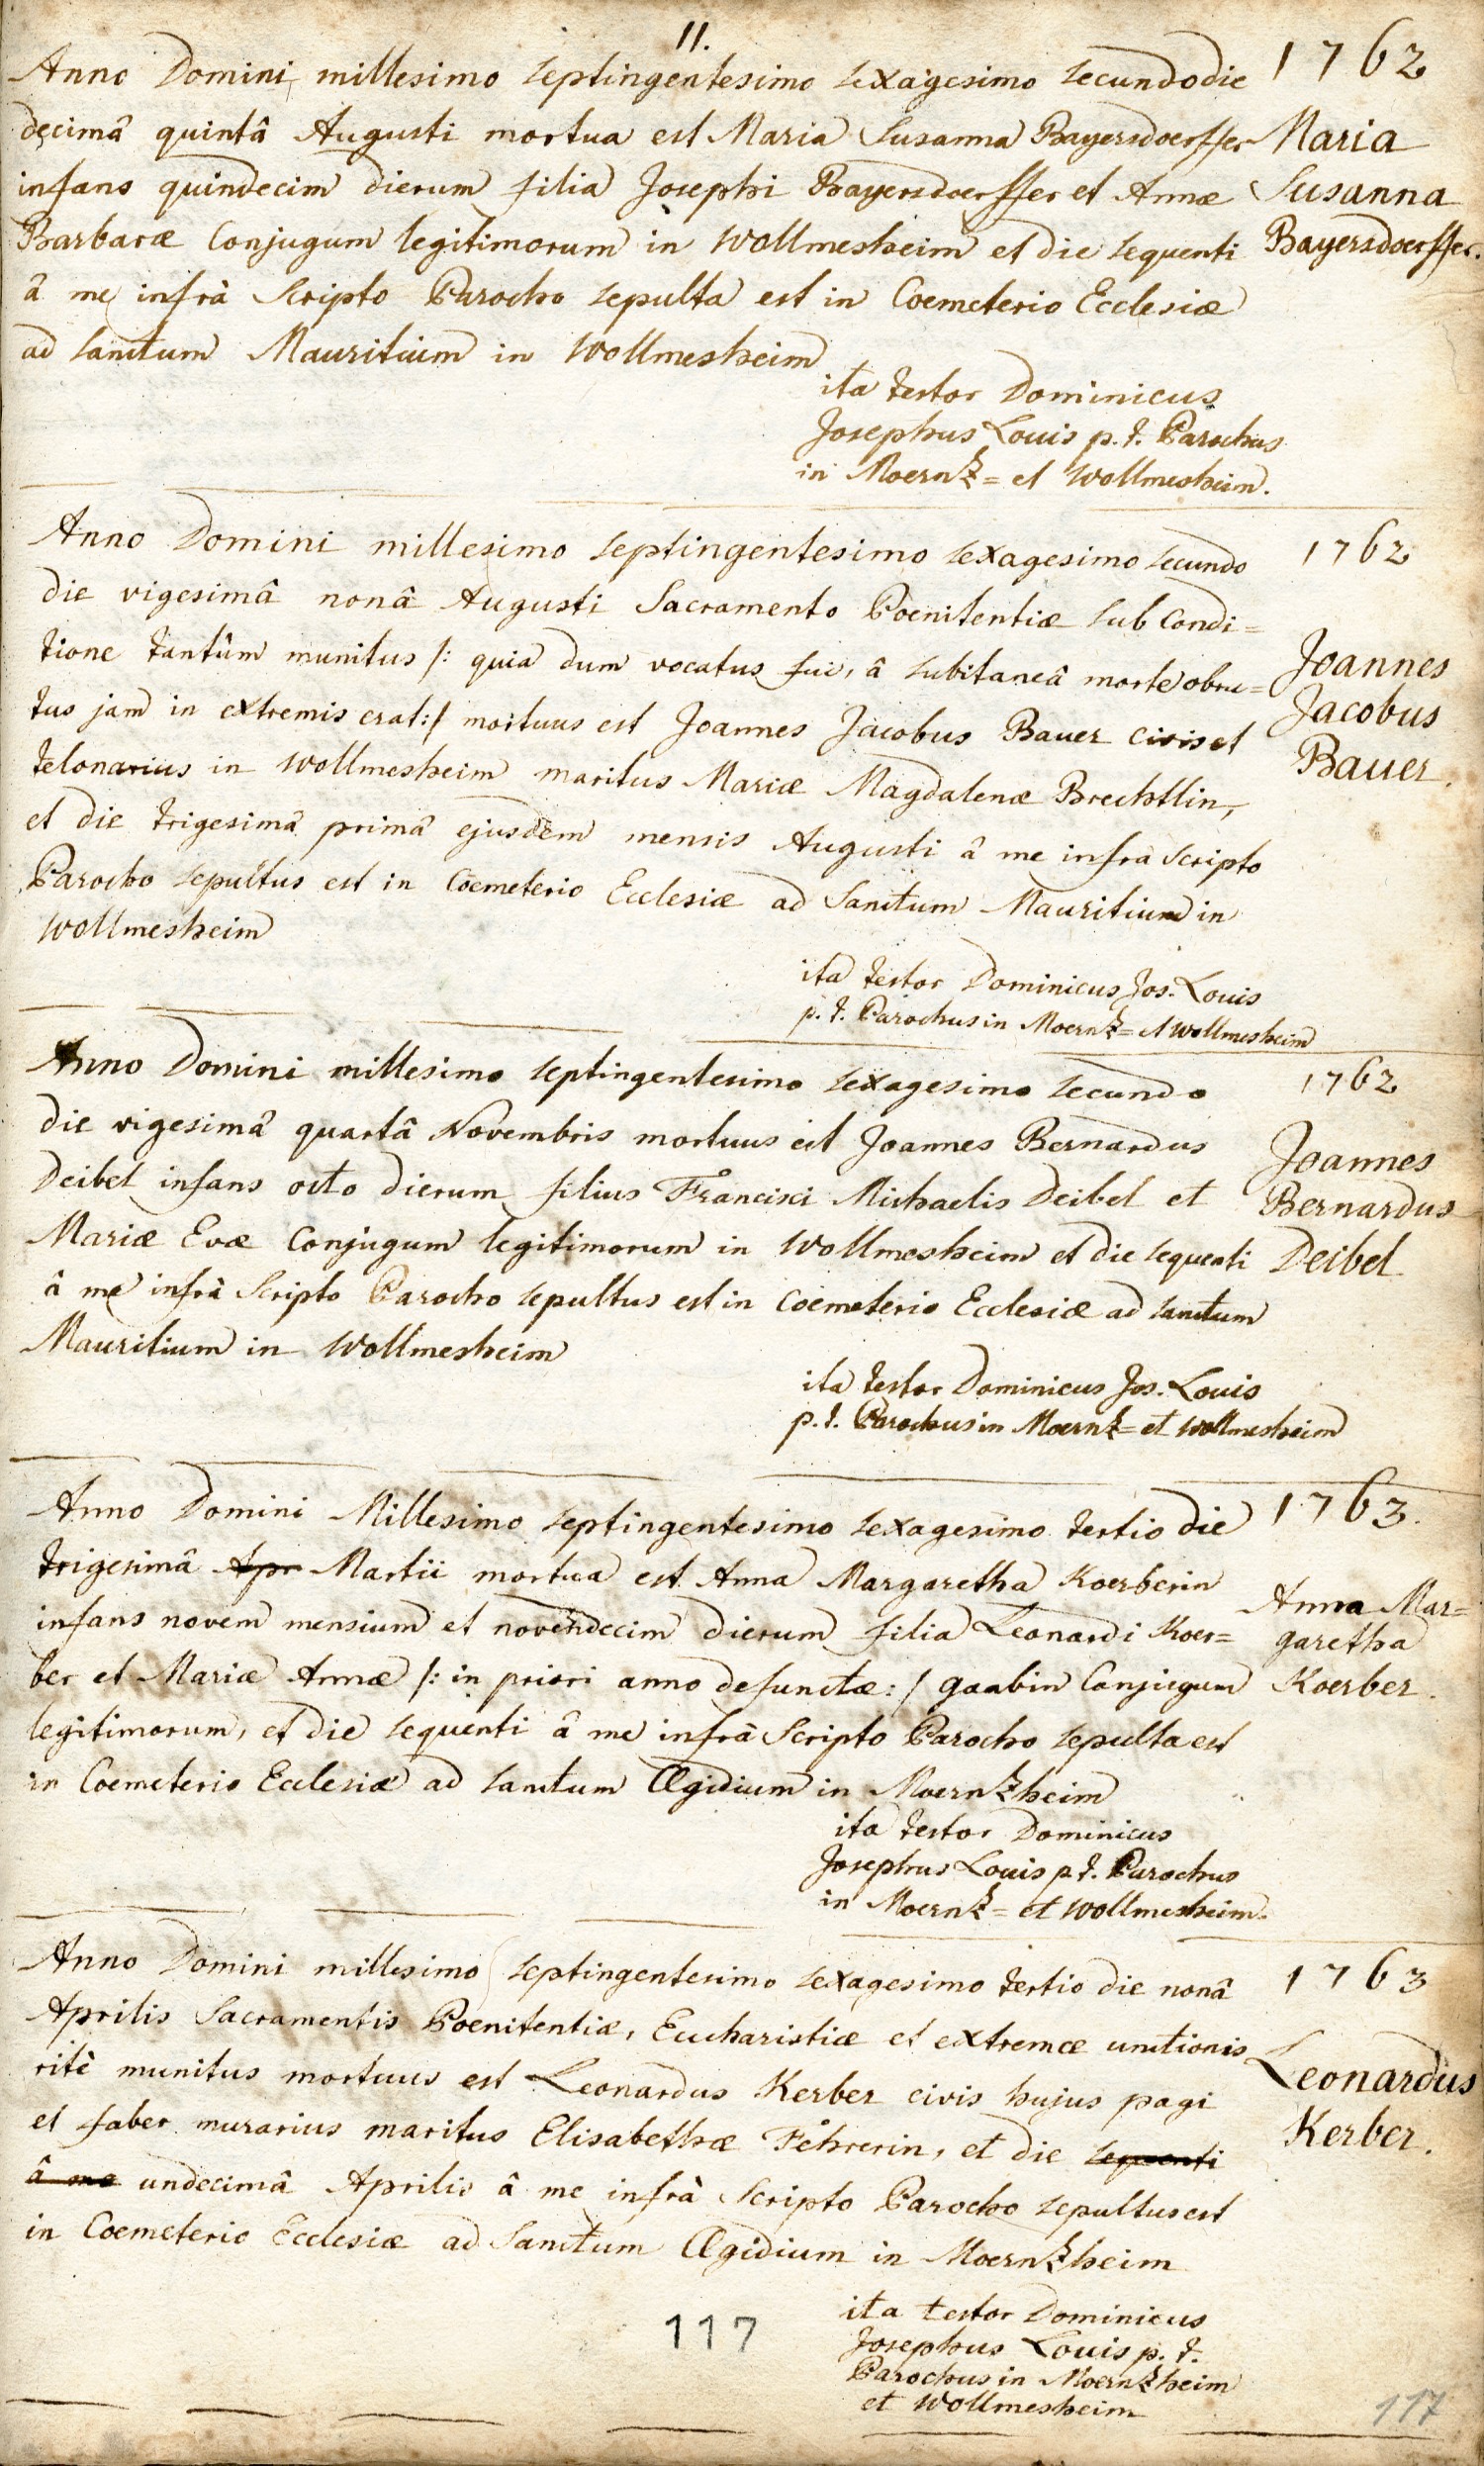 11.
Anno Domini millesimo septingentesimo sexagesimo secundo die
decimâ quintâ Augusti mortua est Maria Susanna Bayersdoerffer
infans quindecim dierum filia Josephi Bayersdoerffer et Annæ
Barbaræ Conjugum legitimorum in Wollmesheim et die sequenti
â me infrà Scripto Parocho sepulta est in Coemeterio Ecclesiæ
ad sanctum Mauritium in Wollmesheim
1762
Maria
Susanna
Bayersdoerffer.
ita testor Dominicus
Josephus Louis p. t. Parochus
in Moerntz= et Wollmesheim.
Anno Domini millesimo septingentesimo sexagesimo secundo
die vigesimâ nonâ Augusti Sacramento Poenitentiæ sub Condi=
tione tantûm munitus /: quia dum vocatus fui, â subitaneâ morte obru=
tus jam in extremis erat :/ mortuus est Joannes Jacobus Bauer civis et
telonarius in Wollmesheim maritus Mariæ Magdalenæ Brechtlin,
et die trigesimâ primâ ejusdem mensis Augusti â me infrà Scripto
Parocho sepultus est in Coemeterio Ecclesiæ ad Sanctum Mauritium in
Wollmesheim
1762
Joannes
Jacobus
Bauer.
ita testor Dominicus Jos. Louis
p. t. Parochus in Moerntz= et Wollmesheim
Anno Domini millesimo septingentesimo sexagesimo secundo
die vigesimâ quartâ Novembris mortuus est Joannes Bernardus
Deibel infans octo dierum filius Francisci Michaelis Deibel et
Mariæ Evæ Conjugum legitimorum in Wollmesheim et die sequenti
â me infrà Scripto Parocho sepultus est in Coemeterio Ecclesiæ ad sanctum
Mauritium in Wollmesheim
1762
Joannes
Bernardus
Deibel
ita testor Dominicus Jos. Louis
p. t. Parochus in Moerntz= et Wollmesheim
Anno Domini Millesimo septingentesimo sexagesimo tertio die
trigesimâ Apr Martii mortua est Anna Margaretha Koerberin
infans novem mensium et novendecim dierum filia Leonardi Koer=
ber et Mariæ Annæ /: in priori anno defunctæ :/ gaabin Conjugum
legitimorum, et die sequenti â me infrà Scripto Parocho sepulta est
in Coemeterio Ecclesiæ ad sanctum Ægidium in Moerntzheim
1763.
Anna Mar=
garetha
Koerber.
ita testor Dominicus
Josephus Louis p t. Parochus
in Moerntz= et Wollmesheim.
Anno Domini millesimo septingentesimo sexagesimo tertio die nonâ
Aprilis Sacramentis Poenitentiæ, Eucharistiæ et extremæ unctionis
ritè munitus mortuus est Leonardus Kerber civis hujus pagi
et faber murarius maritus Elisabethæ Fehrerin, et die sequenti
â me undecimâ Aprilis â me infrà Scripto Parocho sepultus est
in Coemeterio Ecclesiæ ad Sanctum Ægidium in Moerntzheim
1763
Leonardus
Kerber.
ita testor Dominicus
Josephus Louis p. t.
Parochus in Moerntzheim
et Wollmesheim
117
117